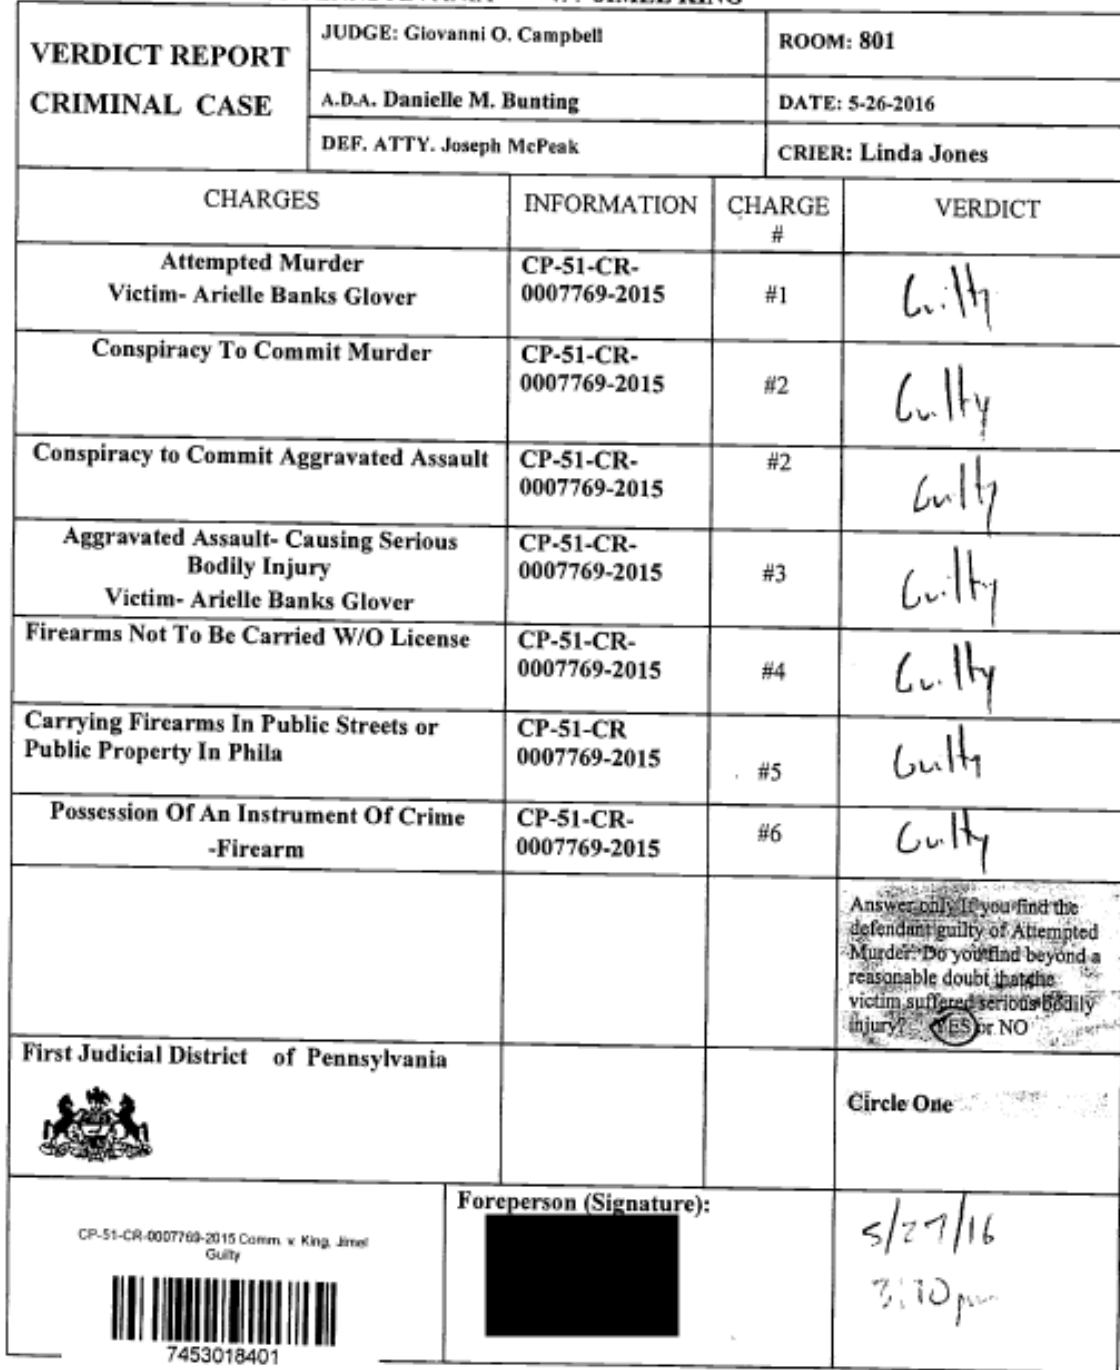 V. JIMEL KING
VERDICT REPORT
CRIMINAL CASE
JUDGE: Giovanni O. Campbell
ROOM: 801
A.D.A. Danielle M. Bunting
DATE: 5-26-2016
DEF. ATTY. Joseph McPeak
CRIER: Linda Jones
CHARGES
INFORMATION
CHARGE
#
VERDICT
Attempted Murder
Victim- Arielle Banks Glover
CP-51-CR-
0007769-2015
#1
Guilty
Conspiracy To Commit Murder
CP-51-CR-
0007769-2015
#2
Guilty
Conspiracy to Commit Aggravated Assault
CP-51-CR-
0007769-2015
#2
Guilty
Aggravated Assault- Causing Serious
Bodily Injury
Victim- Arielle Banks Glover
CP-51-CR-
0007769-2015
#3
Guilty
Firearms Not To Be Carried W/O License
CP-51-CR-
0007769-2015
#4
Guilty
Carrying Firearms In Public Streets or
Public Property In Phila
CP-51-CR
0007769-2015
#5
Guilty
Possession Of An Instrument Of Crime
-Firearm
CP-51-CR-
0007769-2015
#6
Guilty
Answer only If you find the
defendant guilty of Attempted
Murder: Do you find beyond a
reasonable doubt that the
victim suffered serious bodily
injury? YES or NO
First Judicial District of Pennsylvania
Circle One
CP-51-CR-0007769-2015 Comm. v. King, Jimel
Guilty
7453018401
Foreperson (Signature):
5/27/16
pm